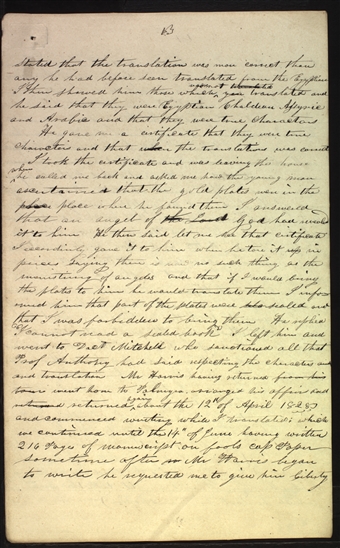 13
stated that the translation was more correct than
any he had before seen translated from the Egyptian
I then showed him those which were not translated and
he said that they were Egyptian Chaldean Assyric
and Arabic and that they were true characters
He gave me a certificate that they were true
characters and that the translation was correct
I took the certificate and was leaving the house
when he called me back and asked me how the young man
ascertained that the gold plates were in the
place where he found them I answered
that an angel of God had revealed
it to him He then said let me see that certificate
I accordingly gave it to him when he tore it up in
pieces saying there is no such thing as the
ministring of angels and that if I would bring
the plates to him he would translate them I infor
med him that part of the plates were sealed and
that I was forbidden to bring them He replied
"I cannot read a sealed book" I left him and
went to Doct Mitchell who sanctioned all that
Prof Anthony had said respecting the characters and
and translation Mr Harris having returned from his
tour went home to Palmyra arranged his affairs and
returned again about the 12th of April 1828
and commenced writing while I translated which
we continued until the 14th of June having written
216 Page of manuscript on fools cap Paper
sometime after Mr Harris began
to write he requested me to give him liberty